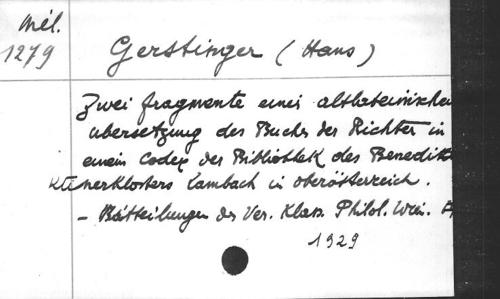 Mél.
1279
Gerstinger (Hans)
Zwei fragmente einer altlateinischen
ubersetzung des Buches der Richter in
einem Codex der Bibliothek des Benedikti
nerklosters Lambach in oberösterreich.
— Mitteilungen des Ver. Klass. Philol. Wien.
1929